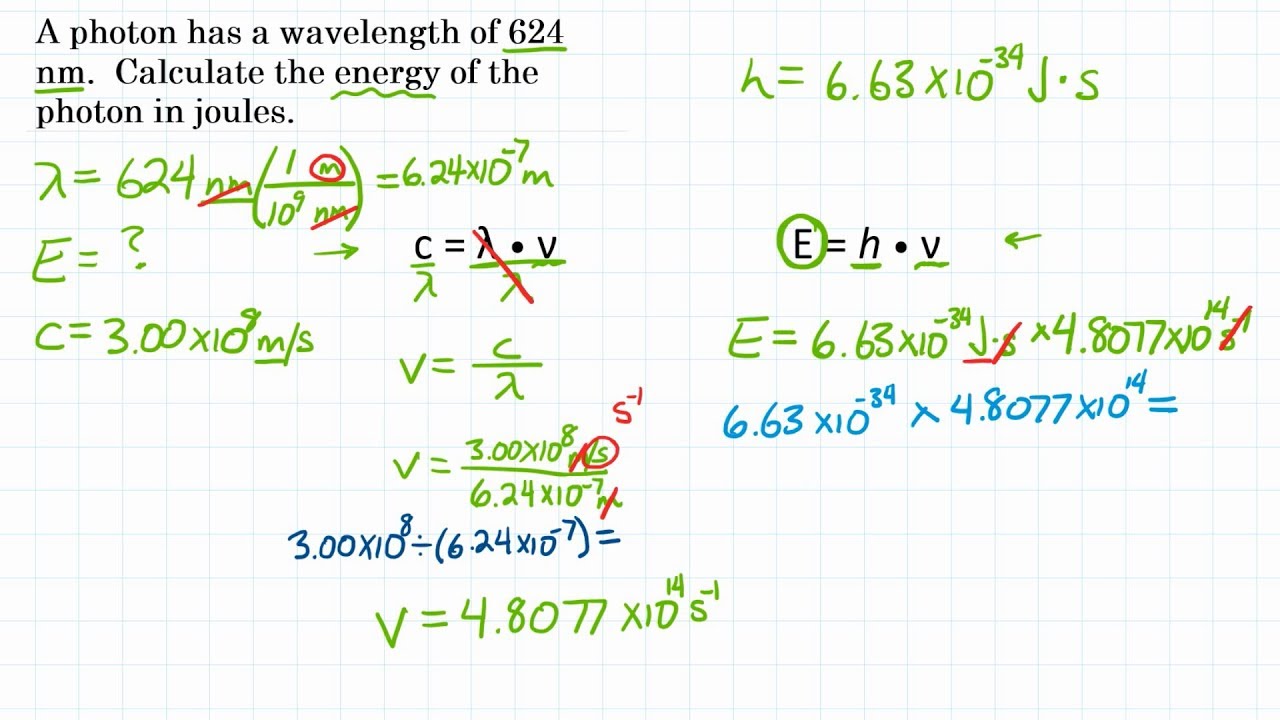 A photon has a wavelength of 624
nm. Calculate the energy of the
photon in joules.
h = 6.63×10⁻³⁴ J·s
λ = 624 nm (1 m / 10⁹ nm) = 6.24×10⁻⁷ m
E = ?
→ c = λ • ν
λ λ
E = h • ν ←
c = 3.00×10⁸ m/s
ν = c / λ
s⁻¹
ν = 3.00×10⁸ m/s / 6.24×10⁻⁷ m
3.00×10⁸ ÷ (6.24×10⁻⁷) =
ν = 4.8077 ×10¹⁴ s⁻¹
E = 6.63×10⁻³⁴ J·s × 4.8077×10¹⁴ s⁻¹
6.63 ×10⁻³⁴ × 4.8077×10¹⁴ =